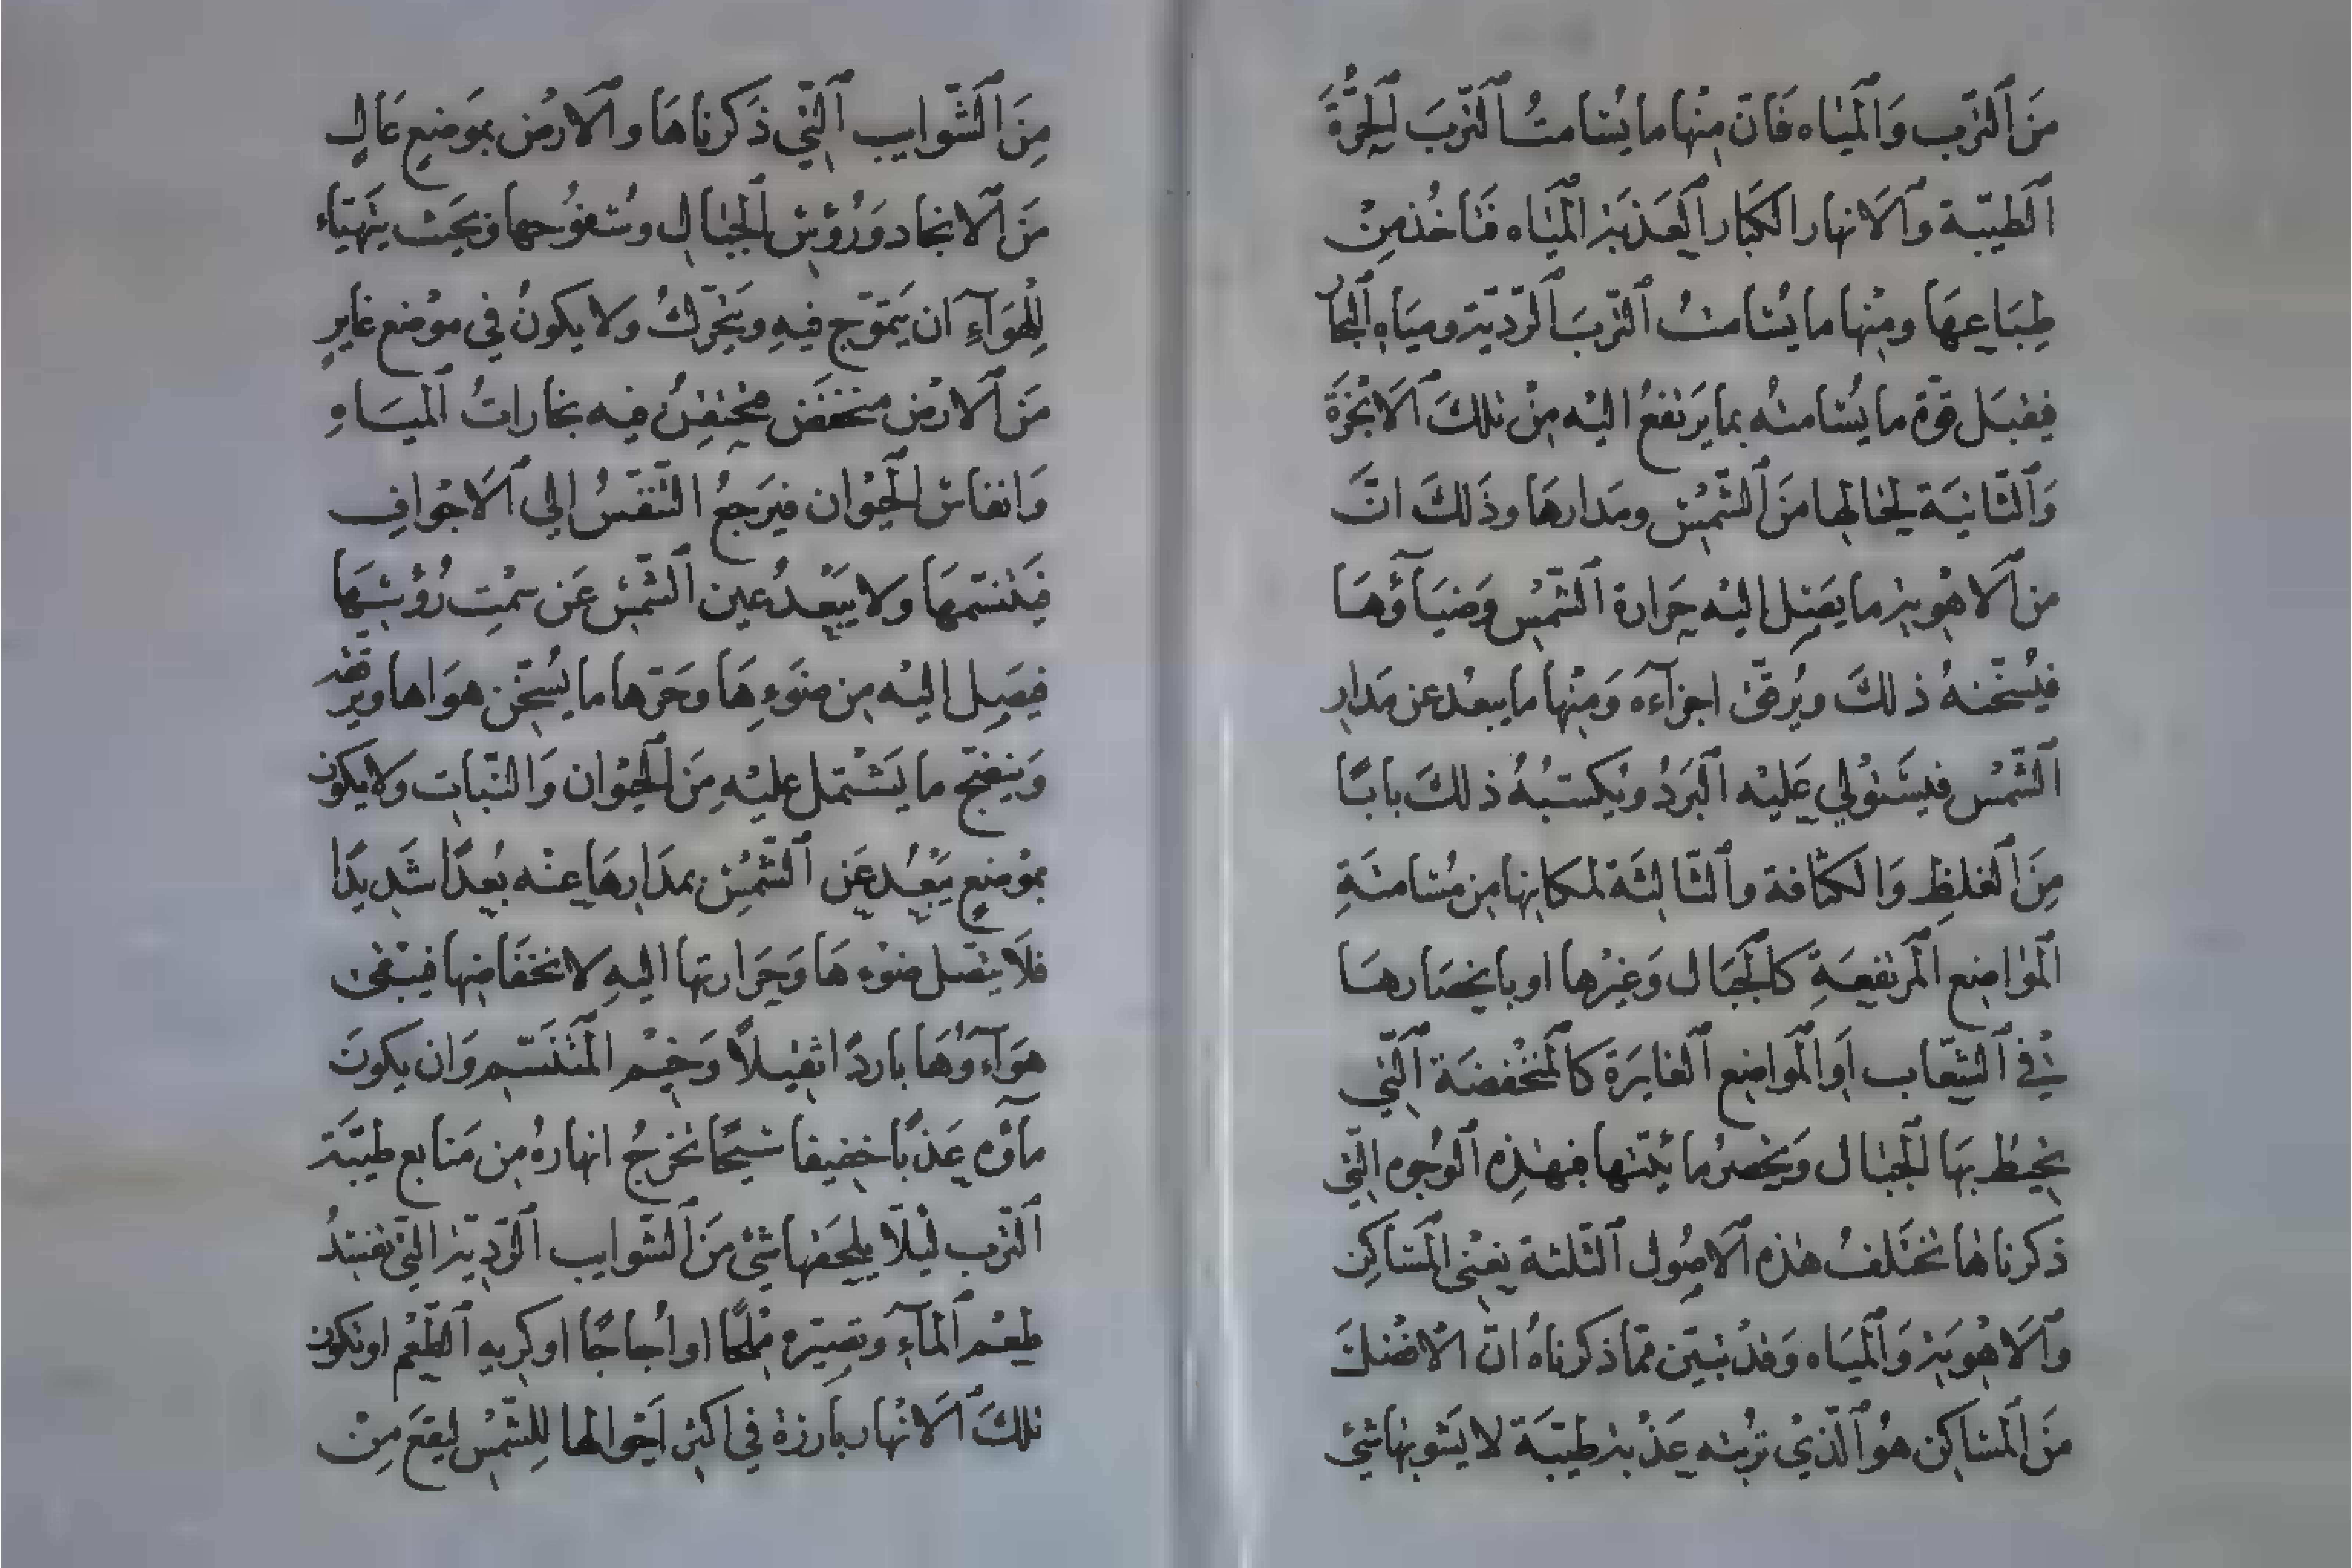 مِنَ ٱلتُّرَبِ وَٱلْمِيَاه فَانّ مِنْهَا ما يُسَامتُ ٱلتُّرَبَ ٱلْحُرَّةَ
ٱلطَيّبَة وَٱلَانهار الكبَار ٱلعَذبَة ٱلْمِيَاه فَيَاخُذ مِنْ
طِبَاعِهَا ومِنْها ما يُسَامتُ ٱلتُّربَ ٱلرّدِيّة ومِيَاه ٱلبحَار
فيقبَل قوّة ما يُسَامتُه بما يَرتفعُ اليْه مِنْ تلكَ ٱلَابْخرَة
وَٱلثّانيَة لِحَالها مَن ٱلشّمسْ ومَدارهَا وذَلكَ انَّ
من ٱلَاهْوِية ما يَصِل اليْه حَرارة ٱلشّمسْ وَضيَآؤهَا
فيُسخّنهُ ذلكَ ويُرقّق اجزآءه وَمِنْها ما يبعُد عن مَدارِ
ٱلشّمْس فيسَتولي عَليْه ٱلْبَرَدُ ويُكسبُهُ ذلكَ بابًا
مِنَ ٱلغلظِ وَالكثَافة وٱلثّالثَة لمكانها من مُسَامتَةِ
ٱلموَاضِع ٱلمرتفِعَةِ كالجبَال وَغيْرها او بانحصَارهَا
فيْ ٱلشِّعَاب اَوٱلموَاضِع ٱلغايرَة كالمنْخفضَة ٱلّتي
يحيْطُ بهَا ٱلجبَال وَيحصرُ ما يُحتها فبهذِه ٱلوُجوه التي
ذكرناهَا تختَلفُ هٰذه ٱلاصُول ٱلثّلثة يَعْنى المسَاكِن
وٱلَاهْوِيَة وَٱلْميَاه وَقدْ تبيّن ممّا ذكرناهُ انّ الَافْضلَ
مَن ٱلمسَاكن هوُ ٱلّذيْ تُربتُه عَذْبة طيّبَة لا يَشوبهَا شيْ
مِنَ ٱلشّوَايب ٱلتي ذَكرناهَا وٱلارْض بموَضعٍ عَالٍ
مَن ٱلَانجَاد وَرُؤسْ ٱلجبَال وسُفوُحها وَبحَيث يتهيّاء
لِلْهوَآءِ ان يَتموّج فيهِ ويتحّركُ ولا يكونُ في موْضع غايرٍ
مَن ٱلَارْض منخفَض محْتقنُ فيه بخاراتُ ٱلميَاهِ
وَانفاسْ الحيْوان فيَرجعُ التّنفّسُ الي ٱلَاجْوافِ
فيَتنسّمهَا وَلا يَبعُدُ عين ٱلشّمسْ عَن سمْتِ رُؤسْهَا
فيصَل اليْه من ضَوءِهَا وحَرّها ما يُسخّن هوَاها ويرققه
وَينضج ما يَشتمل عليْهِ مِنَ ٱلحيْوان وَالنّبات وَلا يكون
بموْضعٍ يَبْعُد عَن ٱلشّمسْ بمدَارهَا عنْه بُعدًا شَديدًا
فلَا يتصل ضوْءهَا وَحَرَارتها اليهِ لانخفَاضِها فيبْقىٰ
هوَآءوُهَا باردًا ثقيْلاً وَخيْم المتنَسّم وَان يكونَ
مآؤه عَذبًا خفيفا سَيحًا تخرجُ انهارهُ من مَنابع طيّبَة
ٱلترَب ليْلَا يلحقها شيْ مَن ٱلشّوايب ٱلرّديّة التيْ تفسِدُ
طعْم ٱلمآءِ وتصيّره ملْحًا اوأُجاجًا او كريه ٱلطّعْم او تكون
تلكَ ٱلَانْهار بَارزة في اكثر اَحْوالها لِلشّمسْ ليقعَ مِنْ